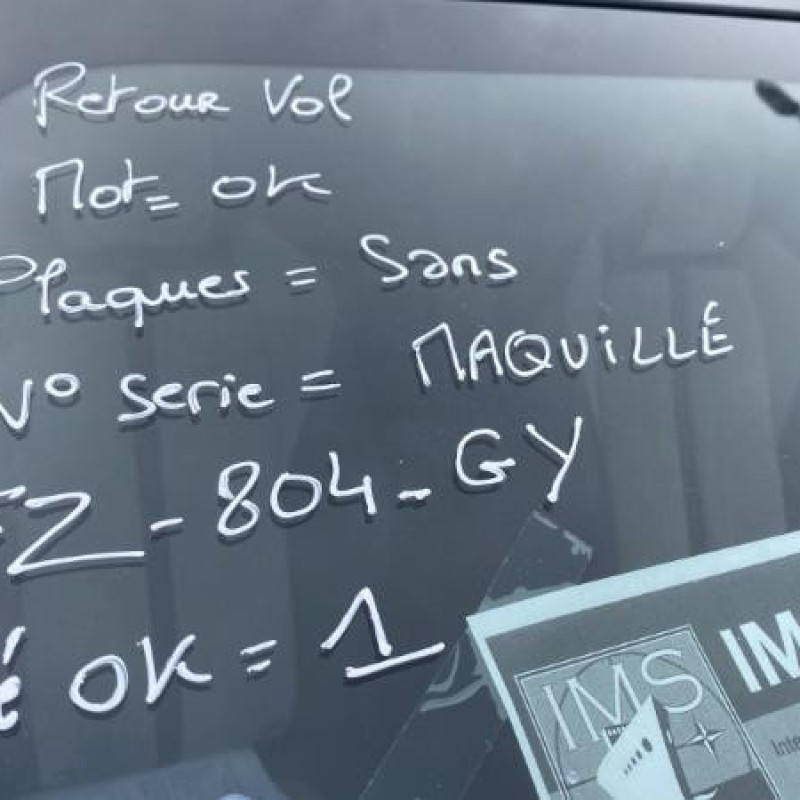 Retour Vol
Mot= OK
Plaques = Sans
N° Serie = MAQUILLÉ
FZ-804-GY
é OK = 1
IMS
IM
Inte